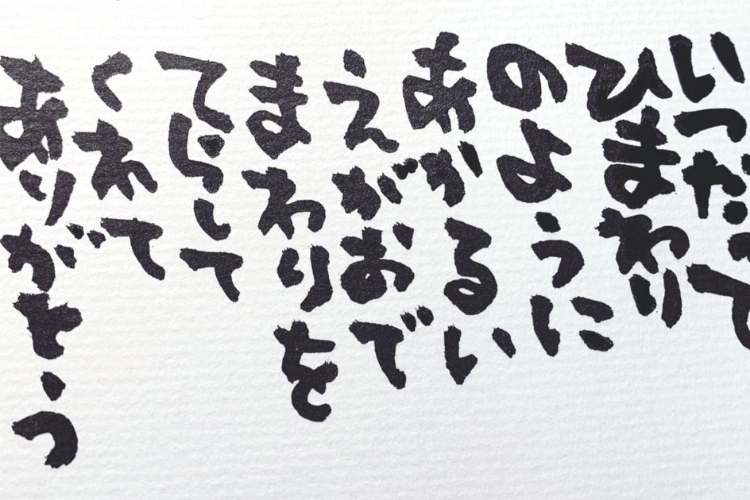 いつだって
ひまわり
のように
あかるい
えがおで
まわりを
てらして
くれて
ありがとう